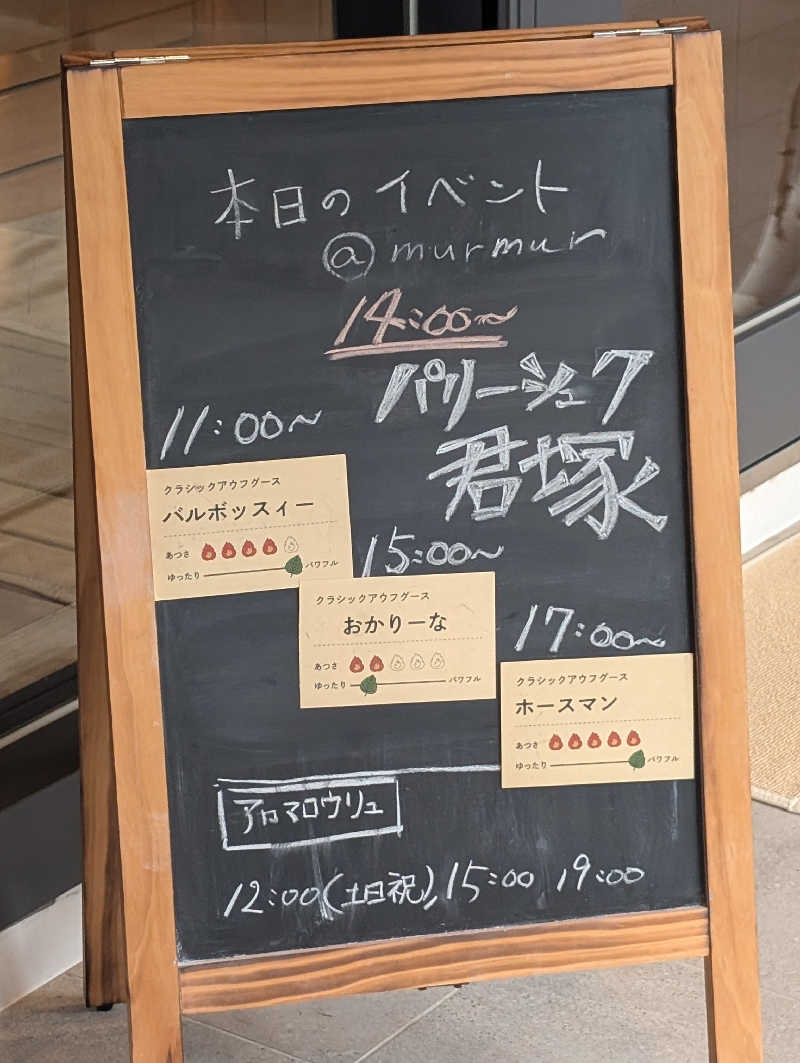 本日のイベント
@murmur
14:00〜
パリーシュク
君塚
11:00〜
クラシックアウフグース
バルボッスィー
あつさ
ゆったり パワフル
15:00〜
クラシックアウフグース
おかりーな
あつさ
ゆったり パワフル
17:00〜
クラシックアウフグース
ホースマン
あつさ
ゆったり パワフル
アロマロウリュ
12:00(土日祝), 15:00 19:00